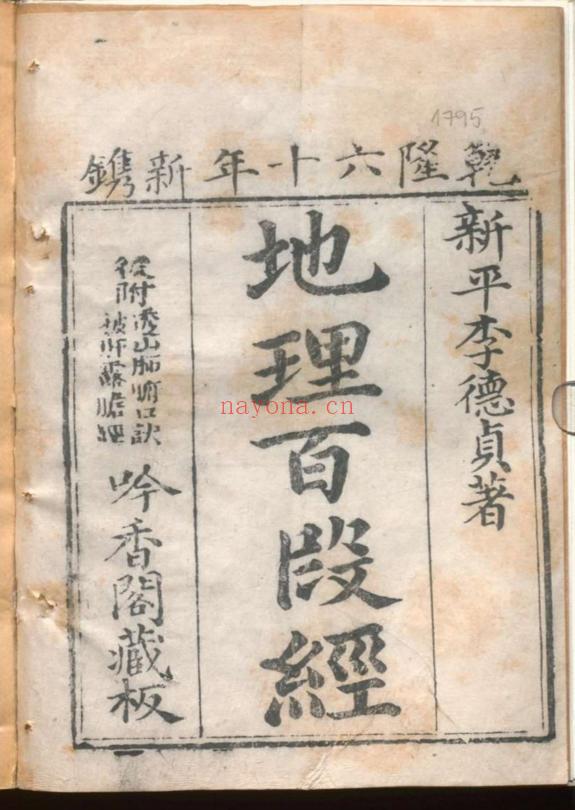 1795
乹隆六十年新鐫
新平李德貞著
地理百段經
後附透山肺腑口訣
披肝露膽經
吟香閣藏板
nayona.cn